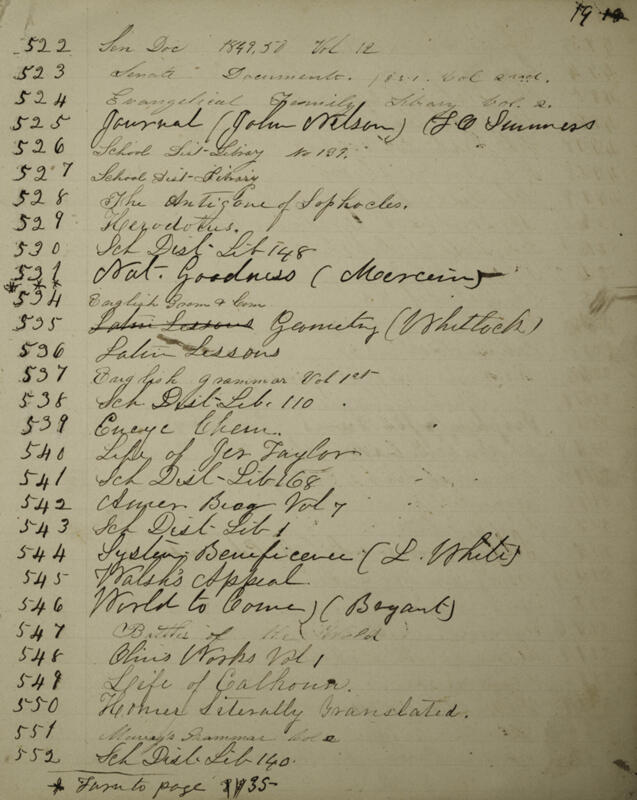 19
522 Sen Doc 1849,50 Vol 12
523 Senate Documents. 1851. Vol 2nd.
524 Evangelical Family Library Vol. 2.
525 Journal (John Nelson) Summers
526 School Dist-Library No 139.
527 School Dist-Library
528 The Antigone of Sophocles.
529 Herodotus.
530 Sch Dist-Lib 148
531 Nat. Goodness (Mercein)
* * *
534 English Gram & Com
535 Latin Lessons Geometry (Whitlock)
536 Latin Lessons
537 English Grammar Vol 1st
538 Sch Dist-Lib. 110
539 Encyc Chem.
540 Life of Jer Taylor
541 Sch Dist-Lib 168
542 Amer Biog Vol 7
543 Sch Dist-Lib 1
544 System Beneficence (L. White)
545 Walsh's Appeal
546 World to Come) (Bryant)
547 Battles of the World
548 Olin's Works Vol 1
549 Life of Calhoun.
550 Homer Literally Translated.
551 Murray's Grammar Vol 2
552 Sch Dist-Lib 140.
* Turn to page 35